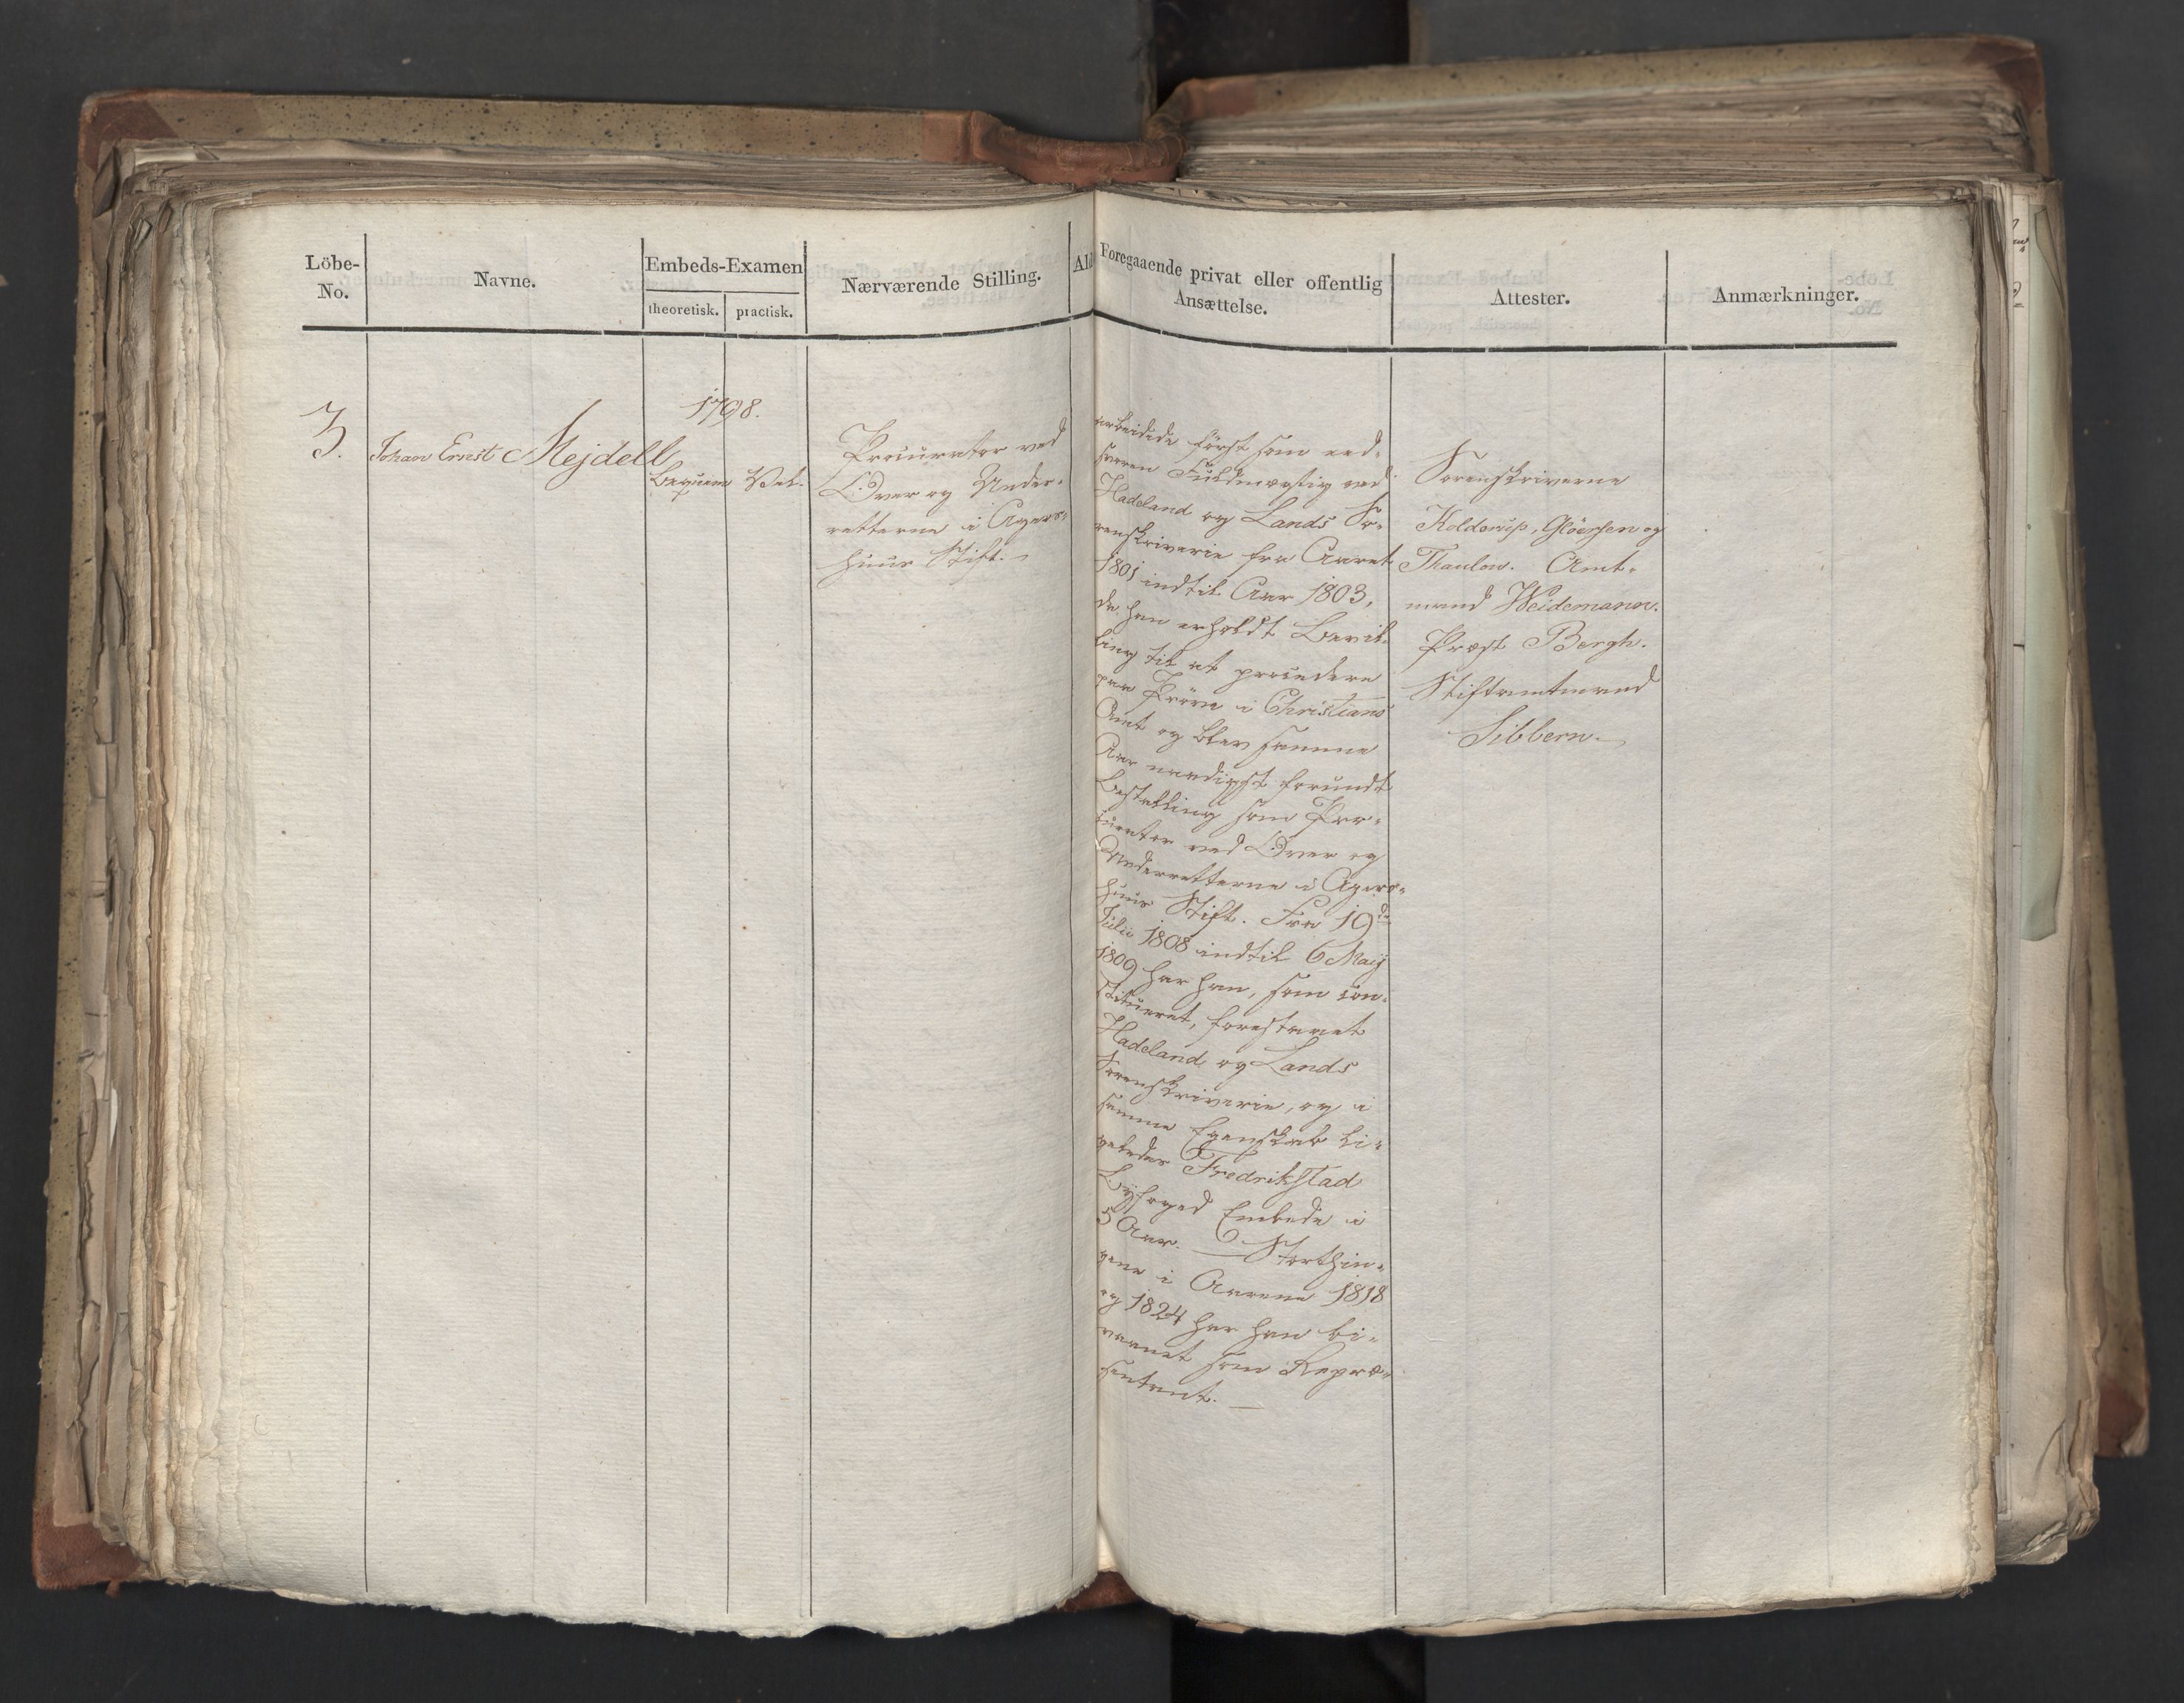 Löbe-
No.
Navne.
Embeds-Examen
theoretisk.
practisk.
Nærværende Stilling.
Ald
Foregaaende privat eller offentlig
Ansættelse.
Attester.
Anmærkninger.
3.
Johan Ernst Mejdell
1798.
Beqvem
Vel.
Procurator ved
Over og Under-
retterne i Agers-
huus Stift.
arbeidede först som eed-
svoren Fuldmægtig ved
Hadeland og Lands So-
renskriverie fra Aaret
1801 indtil Aar 1803,
da han erholdt Bevil-
ling til at procedere
paa Pröve i Christians
Amt og blev samme
Aar naadigst forundt
Bestalling som Pro-
curator ved Over og
Underretterne i Agers-
huus Stift. Fra 19de
Julii 1808 indtil 6 Maij
1809 har han, som con-
stitueret, forestaaet
Hadeland og Lands
Sorenskriverie, og i
samme Egenskab li-
geledes Fredrikstad
Byfoged Embede i
5 Aar. Storthin-
gene i Aarene 1818
og 1824 har han bi-
vaanet som Repræ-
sentant.
Sorenskriverne
Kolderup, Glöersen og
Thaulow. Amt-
mand Weidemann.
Præst Bergh.
Stiftamtmand
Sibbern.